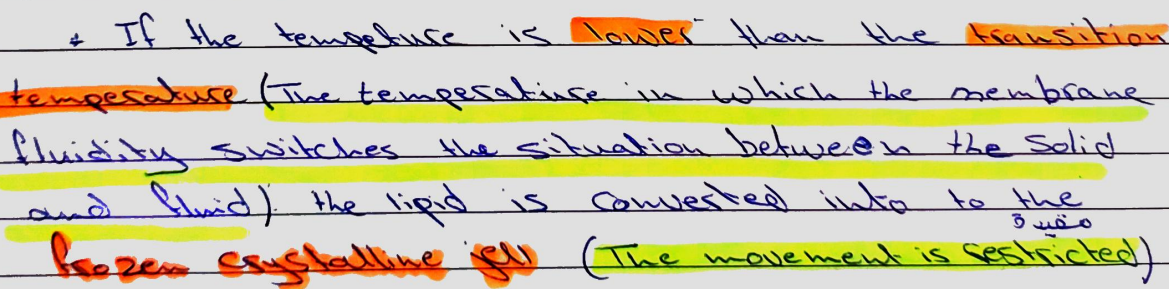 * If the tempeture is lower than the transition
temperature (The temperature in which the membrane
fluidity switches the situation between the Solid
and fluid) the lipid is converted into to the
مقيدة
frozen crystalline jell (The movement is restricted)